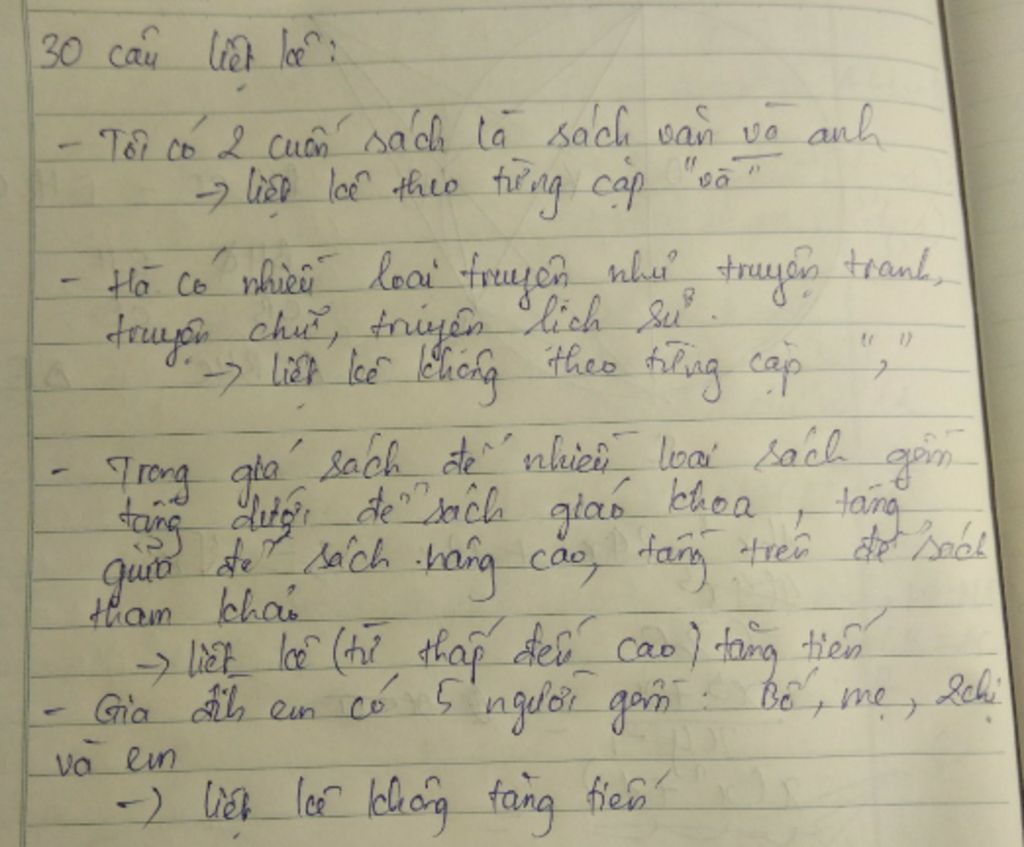 30 câu liệt kê:
- Tôi có 2 cuốn sách là sách văn và anh
→ liệt kê theo từng cặp "và"
- Hà có nhiều loại truyện như truyện tranh,
truyện chữ, truyện lịch sử.
→ liệt kê không theo từng cặp ","
- Trong giá sách để nhiều loại sách gồm
tầng dưới để sách giáo khoa, tầng
giữa để sách nâng cao, tầng trên để sách
tham khảo
→ liệt kê (từ thấp đến cao) tăng tiến
- Gia đìh em có 5 người gồm: Bố, mẹ, 2chị
và em
→ liệt kê không tăng tiến